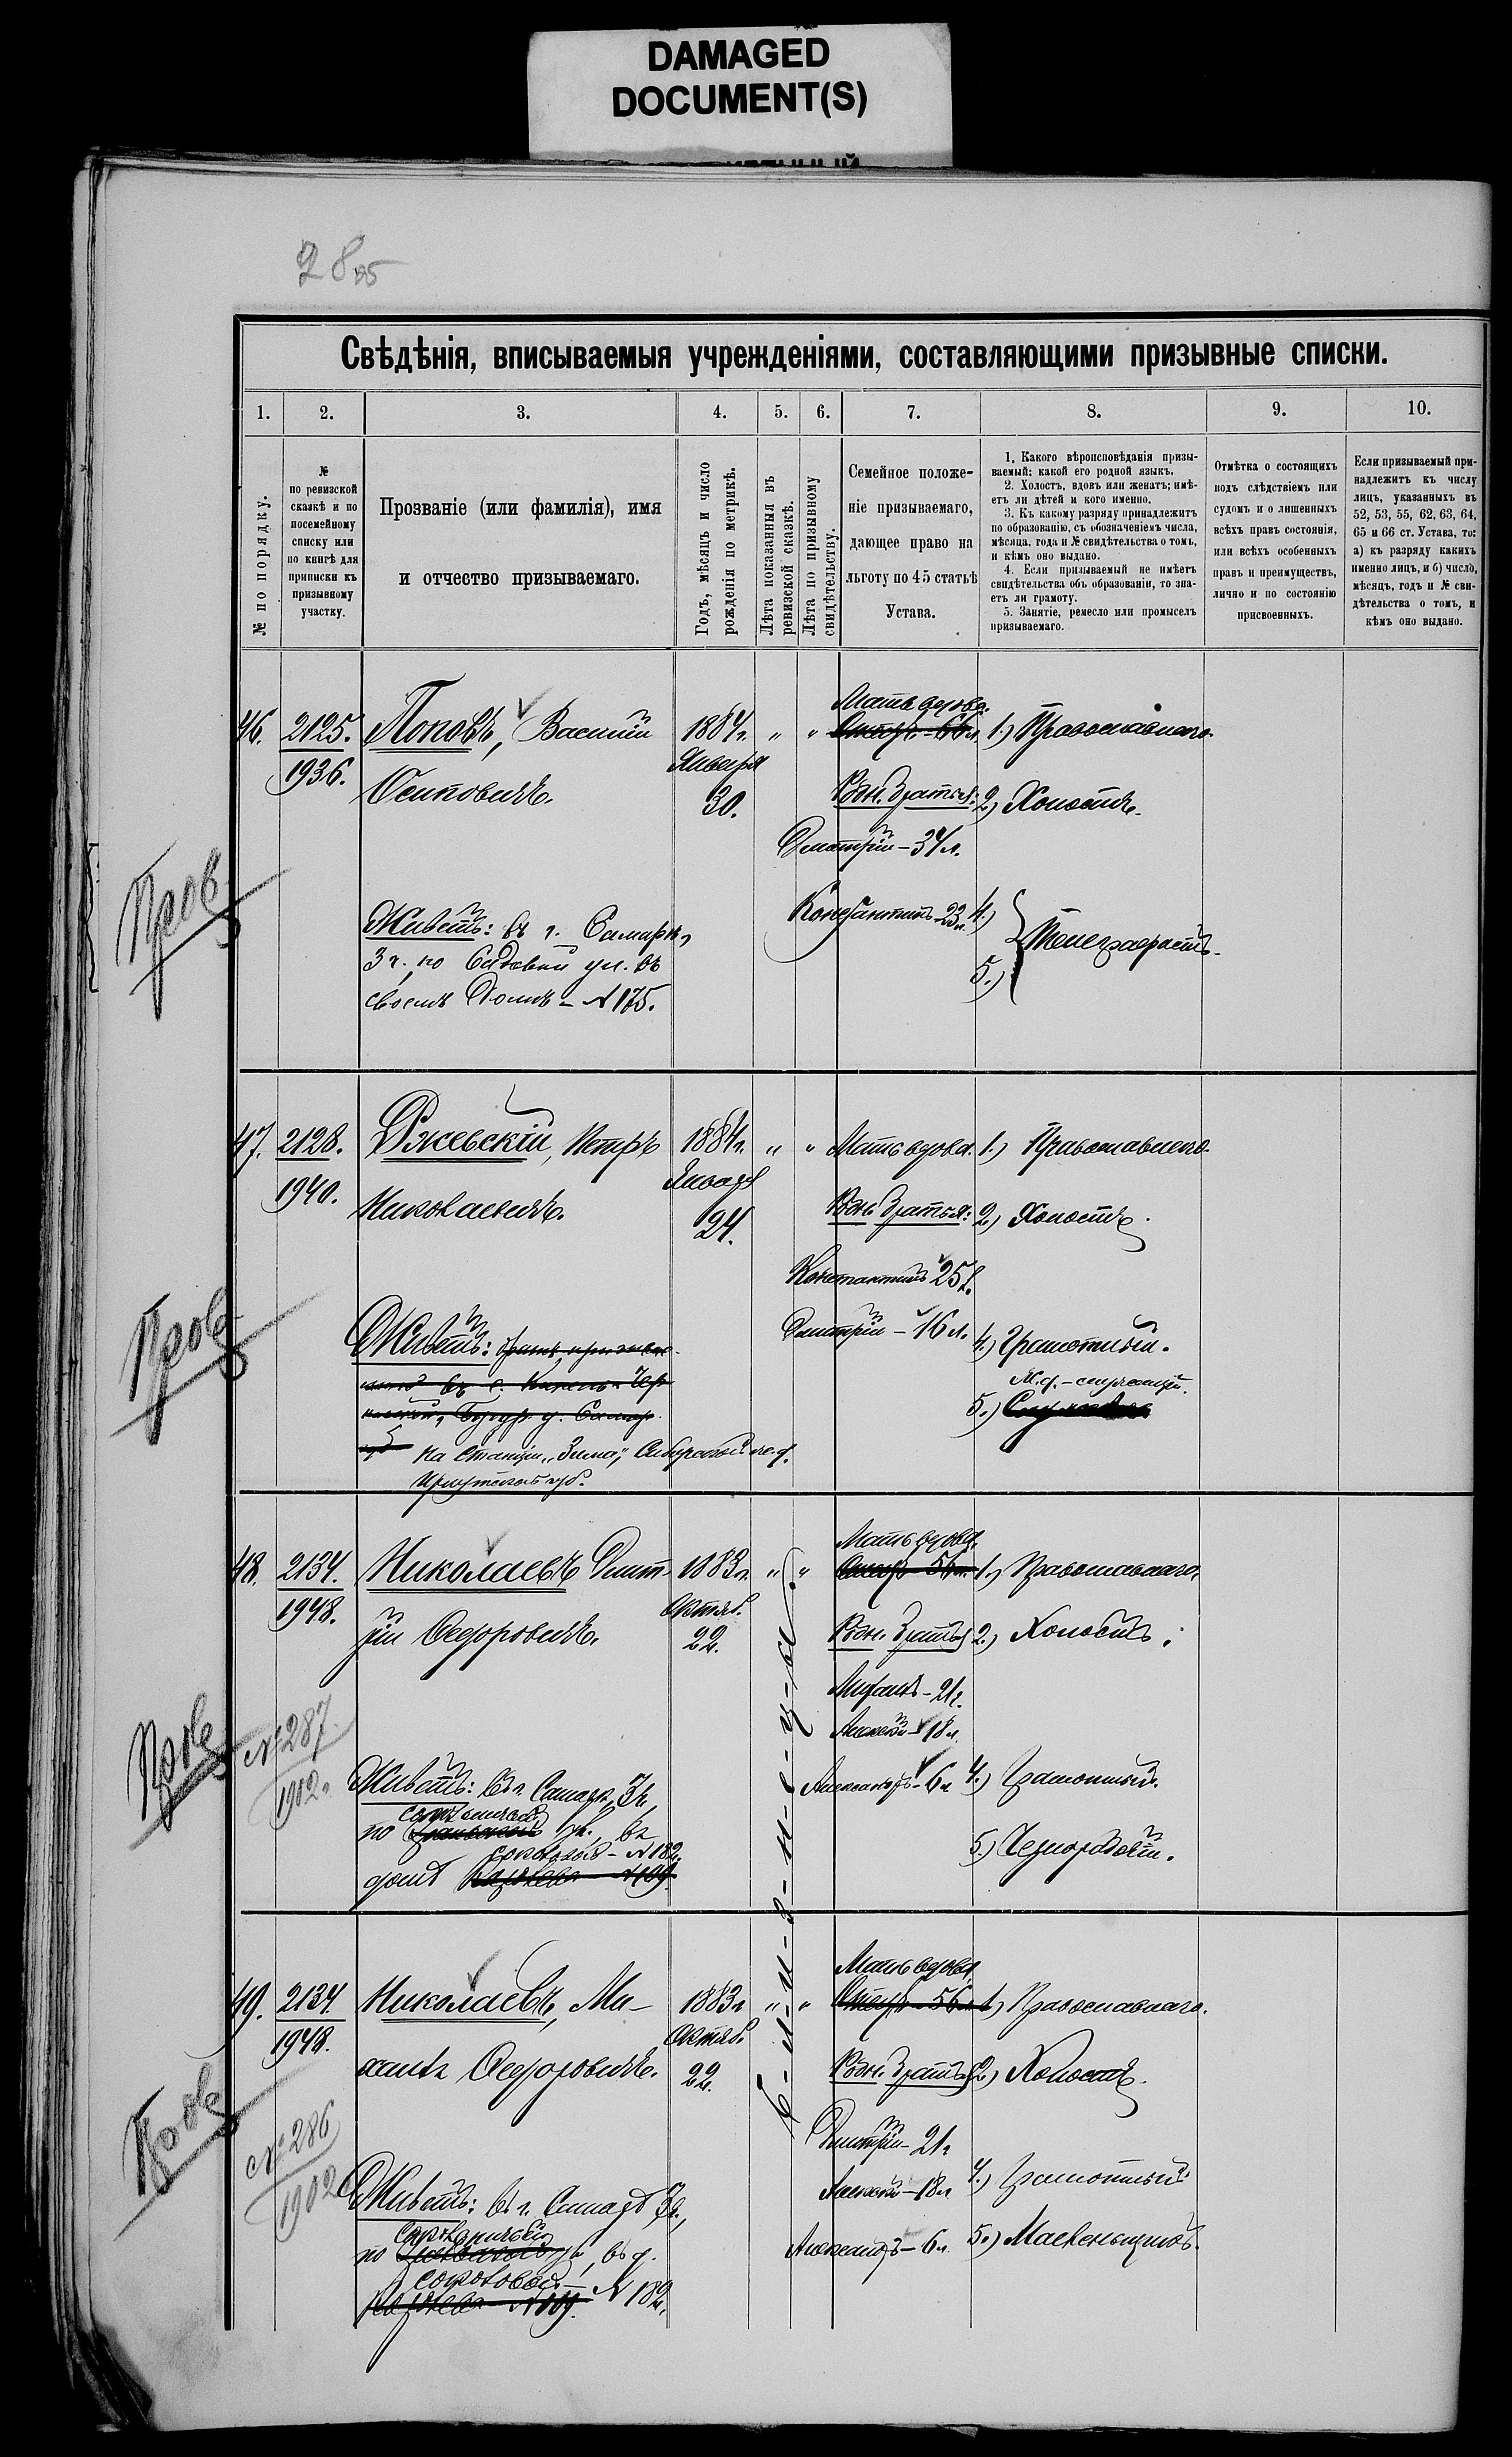 DAMAGED
DOCUMENT(S)
28
Свѣдѣнія, вписываемыя учрежденіями, составляющими призывные списки.
1. 2. 3. 4. 5. 6. 7. 8. 9. 10.
№ по порядку.
№
по ревизской
сказкѣ и по
посемейному
списку или
по книгѣ для
приписки къ
призывному
участку.
Прозваніе (или фамилія), имя
и отчество призываемаго.
Годъ, мѣсяцъ и число
рожденія по метрикѣ.
Лѣта показанныя въ
ревизской сказкѣ.
Лѣта по призывному
свидѣтельству.
Семейное положе-
ніе призываемаго,
дающее право на
льготу по 45 статьѣ
Устава.
1. Какого вѣроисповѣданія призы-
ваемый; какой его родной языкъ.
2. Холостъ, вдовъ или женатъ; имѣ-
етъ ли дѣтей и кого именно.
3. Къ какому разряду принадлежитъ
по образованію, съ обозначеніемъ числа,
мѣсяца, года и № свидѣтельства о томъ,
и кѣмъ оно выдано.
4. Если призываемый не имѣетъ
свидѣтельства объ образованіи, то зна-
етъ ли грамоту.
5. Занятіе, ремесло или промыселъ
призываемаго.
Отмѣтка о состоящихъ
подъ слѣдствіемъ или
судомъ и о лишенныхъ
всѣхъ правъ состоянія,
или всѣхъ особенныхъ
правъ и преимуществъ,
лично и по состоянію
присвоенныхъ.
Если призываемый при-
надлежитъ къ числу
лицъ, указанныхъ въ
52, 53, 55, 62, 63, 64,
65 и 66 ст. Устава, то:
а) къ разряду какихъ
именно лицъ, и б) число,
мѣсяцъ, годъ и № сви-
дѣтельства о томъ, и
кѣмъ оно выдано.
46.
2125.
1936.
Поповъ, Василій
Осиповичъ.
Живетъ: въ г. Самарѣ,
3 ч. по Садовой ул. въ
своемъ домѣ - № 175.
1884 г.
Января
30.
" "
Мать вдова.
Отецъ - 66 л.
Родн. братья:
Дмитрій - 34 л.
Константинъ - 23 л.
1.) Православнаго.
2.) Холостъ.
4.)
5.) Телеграфистъ.
Пров
47.
2128.
1940.
Ржевскій, Петръ
Николаевичъ.
Живетъ:
на станціи "Зима", Сибирской ж. д.
Иркутской губ.
1884 г.
Января
24.
" "
Мать вдова.
Родн. братья:
Константинъ 25 л.
Дмитрій - 16 л.
1.) Православнаго.
2.) Холостъ.
4.) Грамотный.
Ж. д. - служащій.
5.)
Пров
48.
2134.
1948.
№ 287
1902 г.
Николаевъ Дмит-
рій Федоровичъ.
Живетъ: въ г. Самарѣ, 3 ч.,
по ул., въ
домѣ - № 182.
№ 109.
1883 г.
Октяб.
22.
" "
Б-л-и-з-н-е-ц-ы.
Мать вдова.
Отецъ - 56 л.
Родн. братья
Михаилъ - 21 г.
Алексѣй - 18 л.
Александръ - 6 л.
1.) Православнаго.
2.) Холостъ.
4.) Грамотный.
5.) Чернорабочій.
Пров
49.
2134.
1948.
№ 286
1902
Николаевъ, Ми-
хаилъ Федоровичъ.
Живетъ: въ г. Самарѣ 3 ч.,
по ул., въ д.
№ 109. № 182.
1883 г.
Октяб.
22.
" "
Мать вдова.
Отецъ - 56 л.
Родн. братья
Дмитрій - 21 г.
Алексѣй - 18 л.
Александръ - 6 л.
1.) Православнаго.
2.) Холостъ.
4.) Грамотный.
5.)
Пров